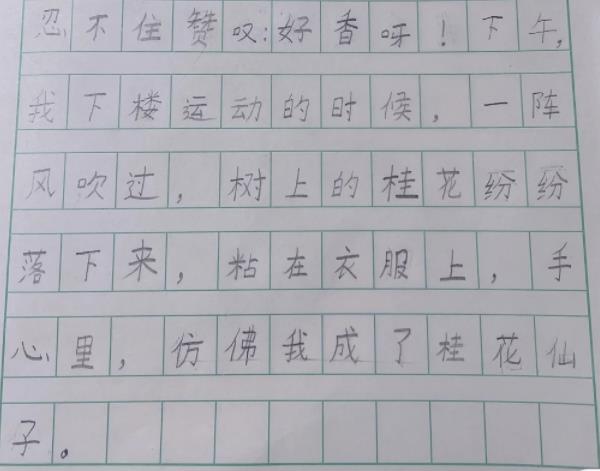 忍不住赞叹:好香呀!下午,
我下楼运动的时候,一阵
风吹过,树上的桂花纷纷
落下来,粘在衣服上,手
心里,仿佛我成了桂花仙
子。